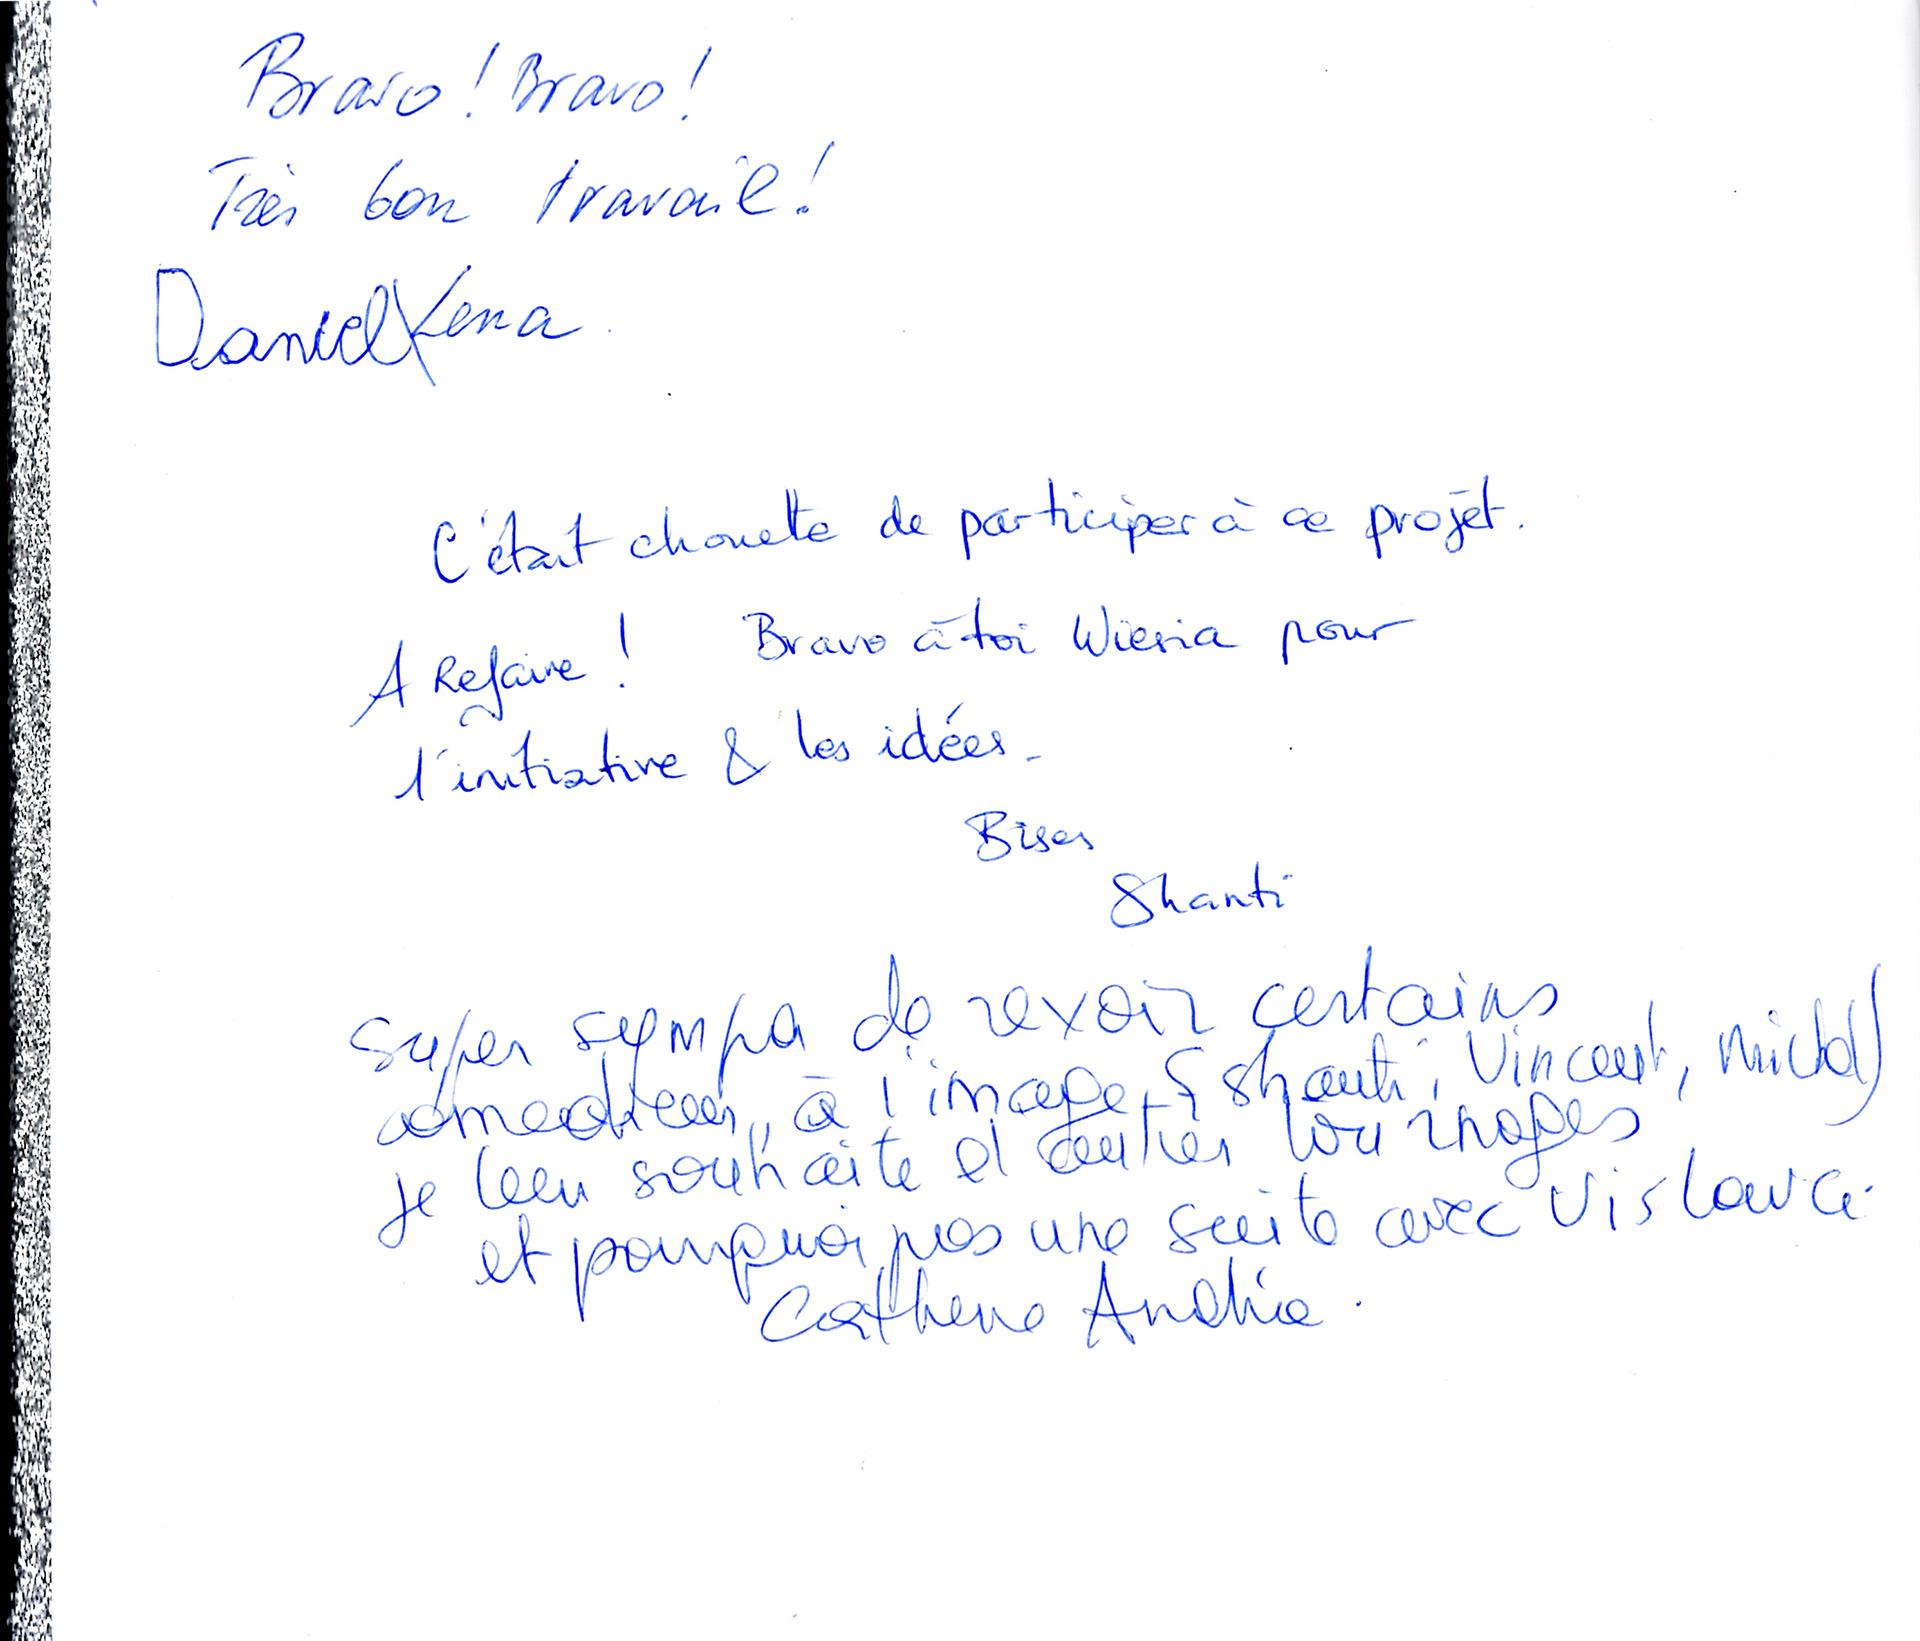 Bravo ! Bravo !
Très bon travail !
Daniel Lena
C'était chouette de participer à ce projet.
A Refaire ! Bravo à toi Wiesia pour
l'initiative & les idées.
Bises
Shanti
super sympa de revoir certains
comediens, à l'image, Shanti, Vincent, Michel)
je leur souhaite d'autres tournages
et pourquoi pas une suite avec Vislava.